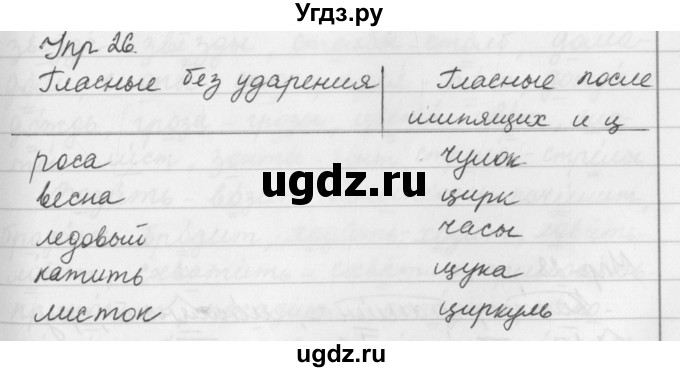 Угдз.ру
Упр 26.
Гласные без ударения
Гласные после
шипящих и ц
роса
чулок
весна
цирк
ледовый
часы
катить
щука
листок
циркуль
ugdz.ru
ugdz.ru